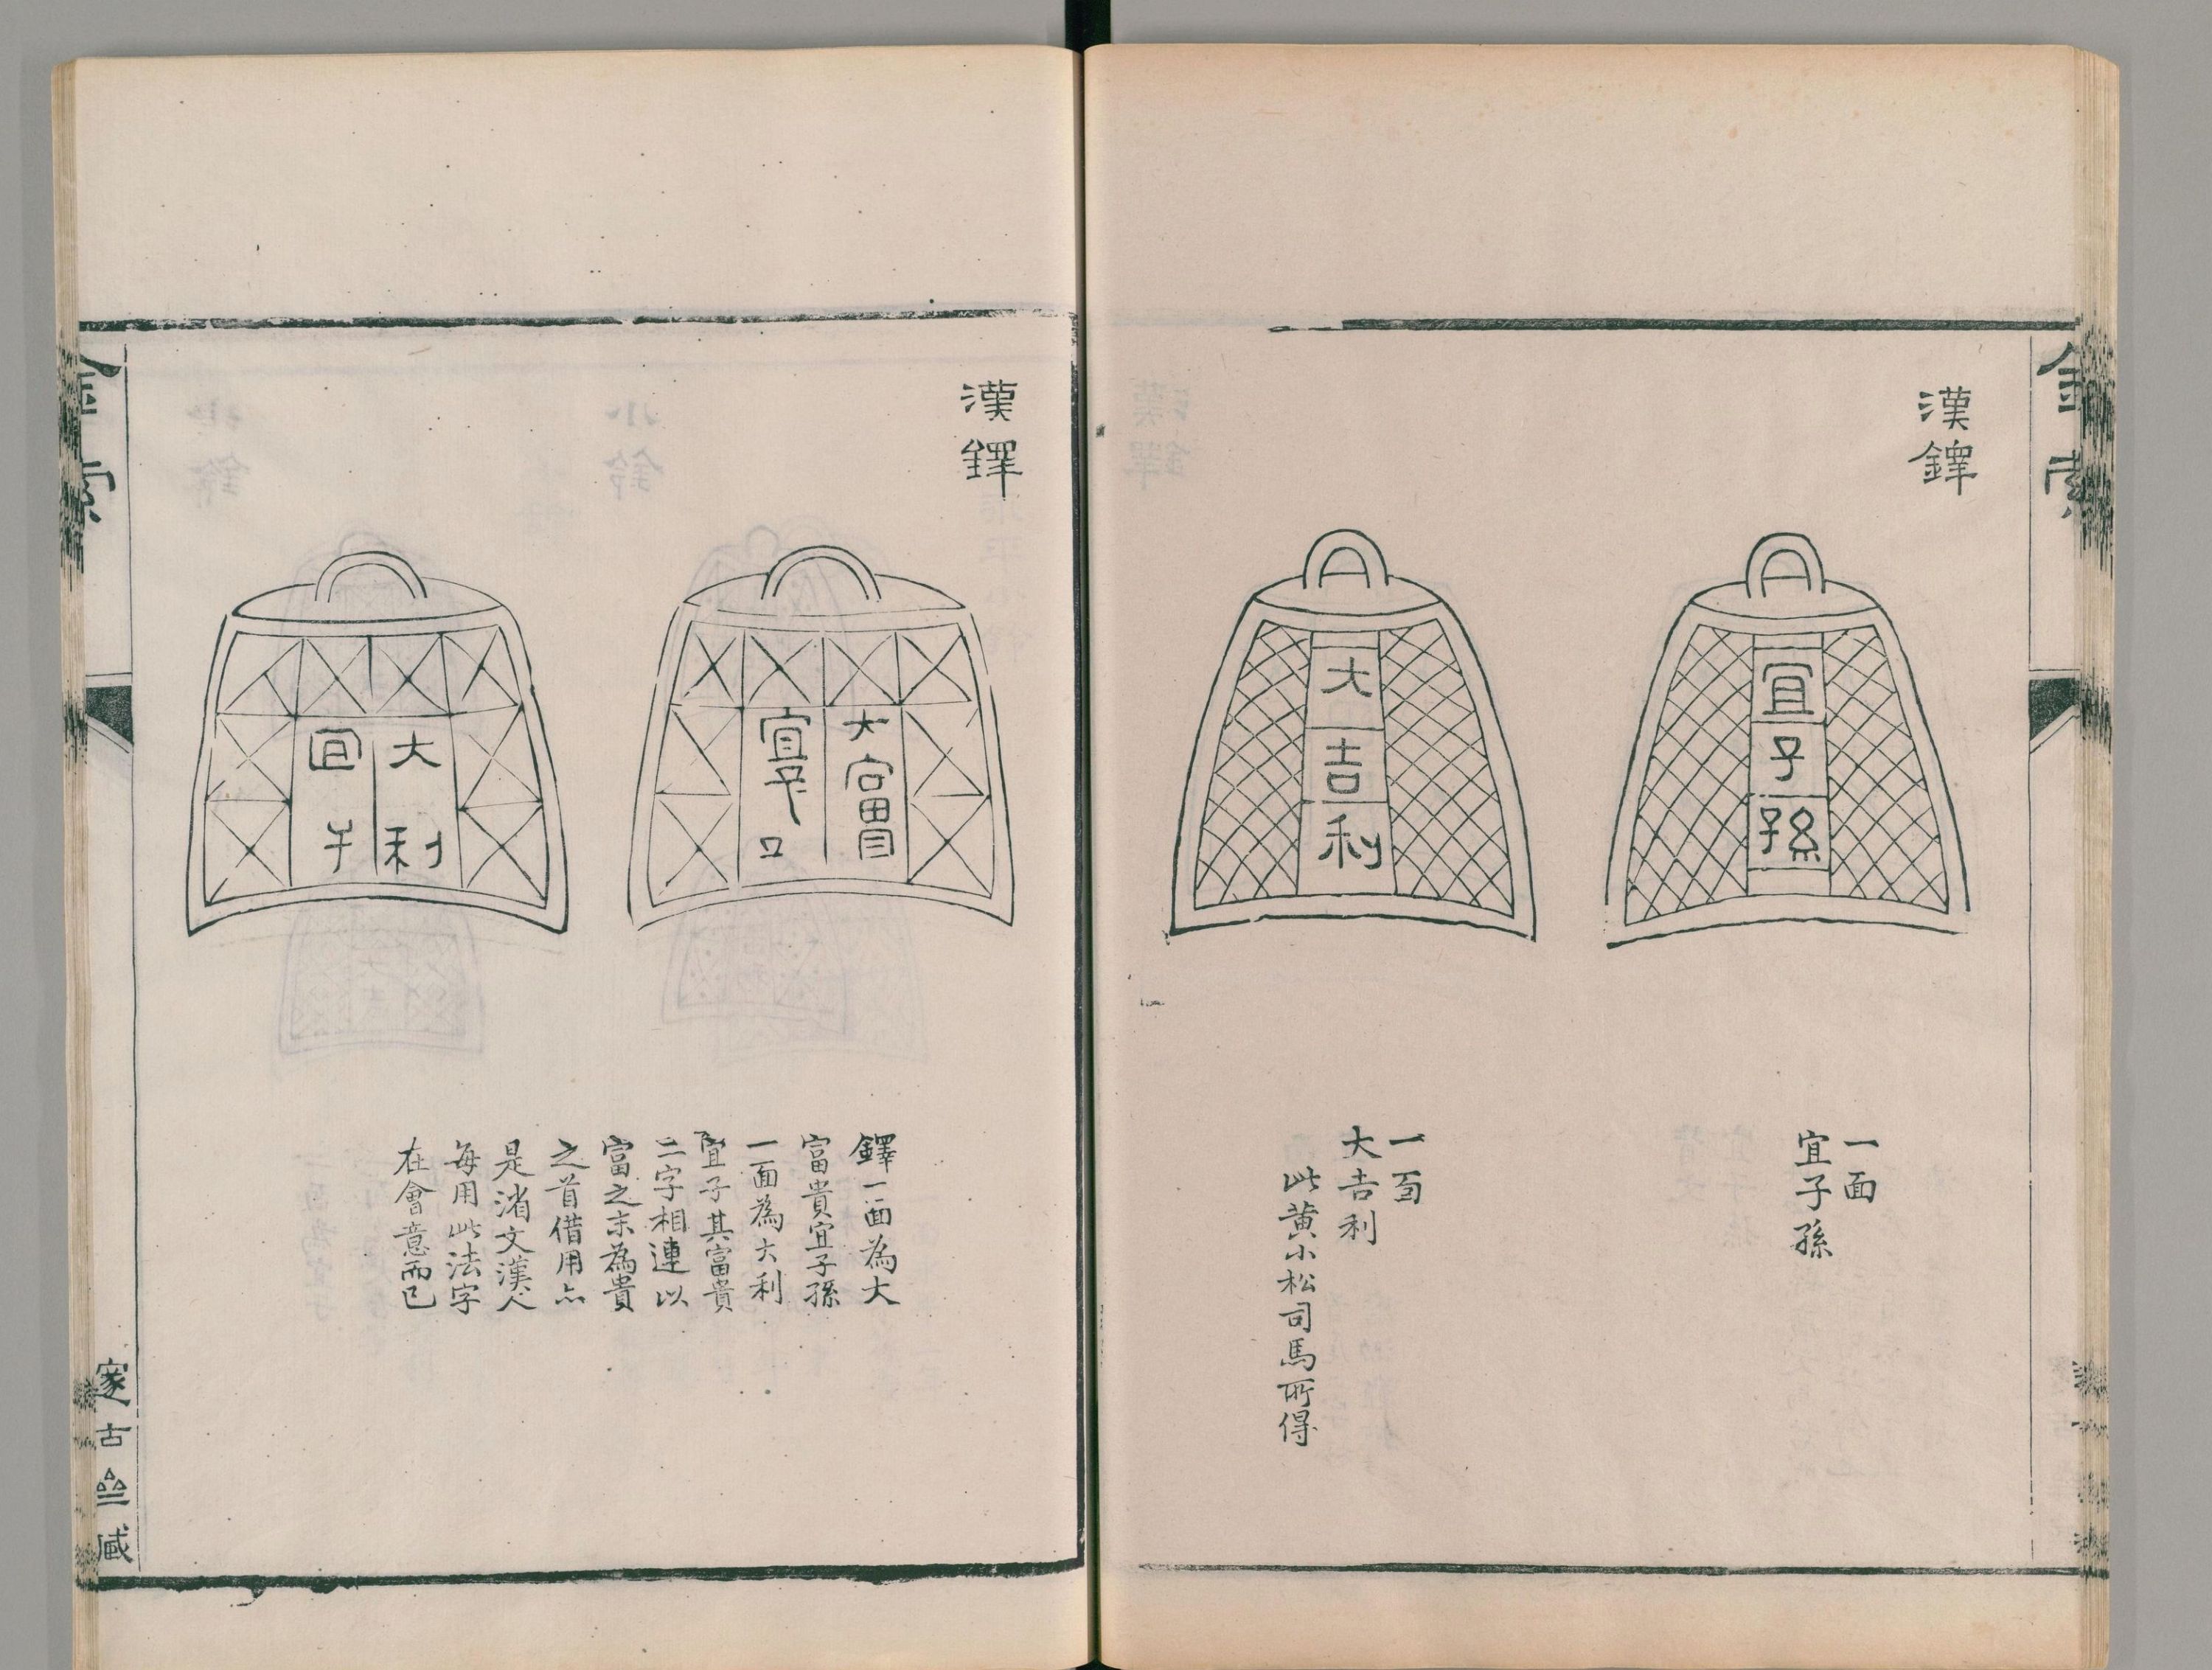 金索
漢鐸
宜子孫
大吉利
一面
宜子孫
一面
大吉利
此黄小松司馬所得
漢鐸
大富
宜子
大利
宜子
鐸一面為大
富貴宜子孫
一面為大利
宜子其富貴
二字相連以
富之末為貴
之首借用亦
是消文漢人
每用此法字
在會意而已
金索
邃古齋藏